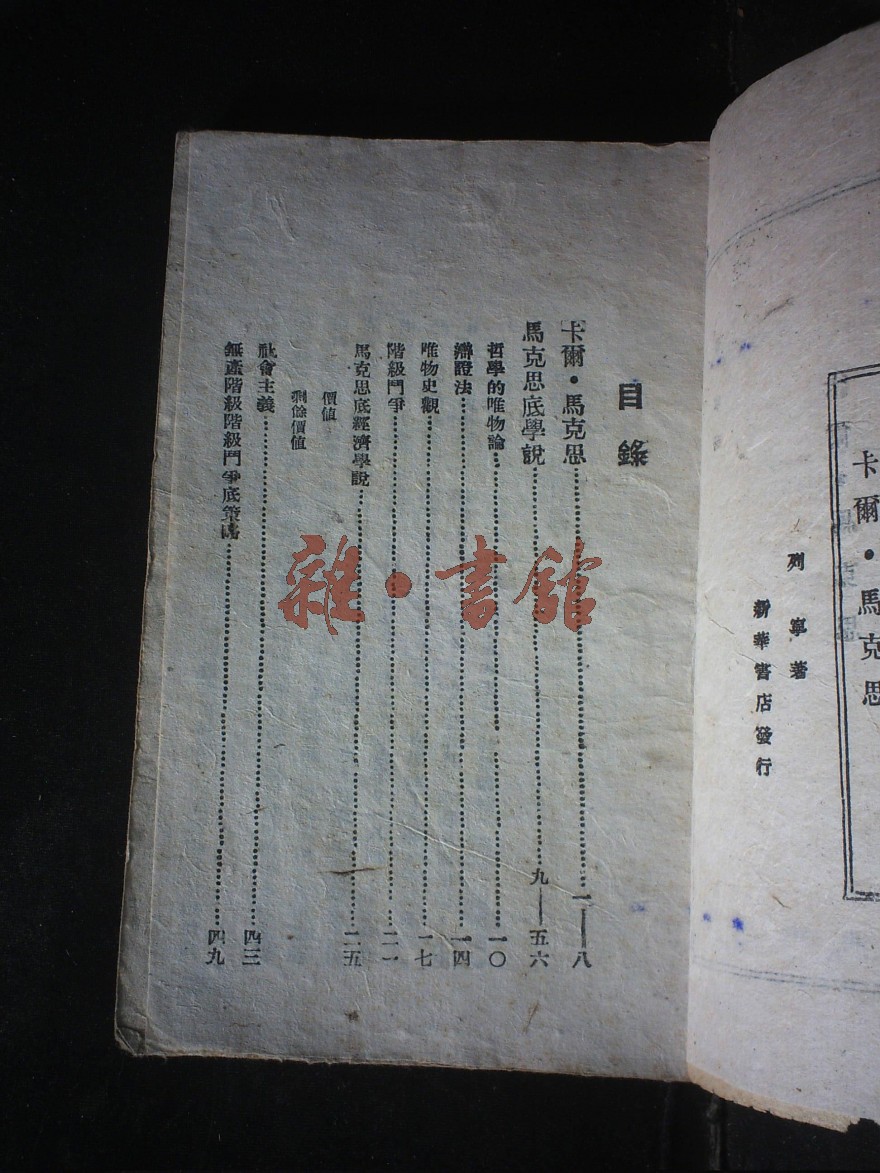 卡爾·馬克思
列寧著
新華書店發行
目錄
卡爾·馬克思……一——八
馬克思底學說……九——五六
哲學的唯物論……一〇
辯證法……一四
唯物史觀……一七
階級鬥爭……二一
馬克思底經濟學說……二五
價值
剩餘價值
社會主義……四三
無產階級階級鬥爭底策略……四九
雜·書館